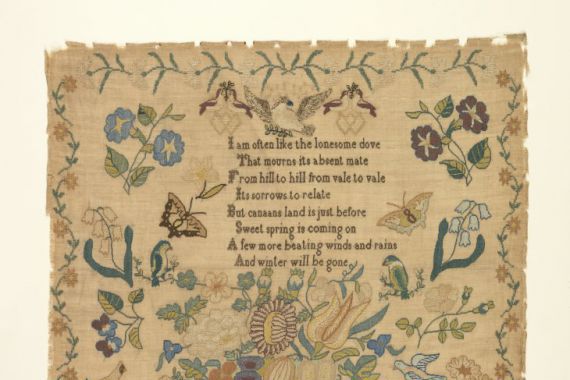 I am often like the lonesome dove
That mourns its absent mate
From hill to hill from vale to vale
Its sorrows to relate
But canaans land is just before
Sweet spring is coming on
A few more beating winds and rains
And winter will be gone